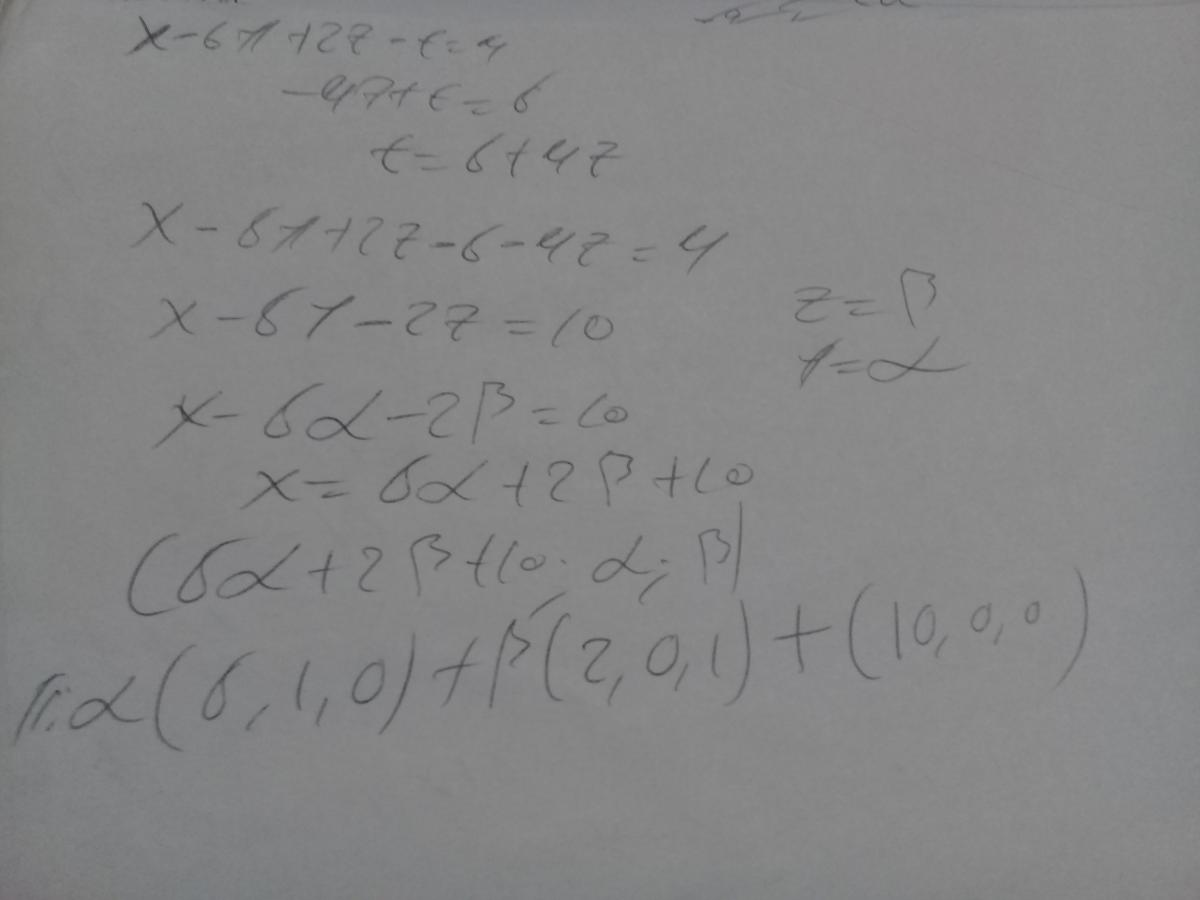 x-6y+2z-t=4
-4z+t=6
t=6+4z
x-6y+2z-6-4z=4
x-6y-2z=10
z=β
y=α
x-6α-2β=10
x=6α+2β+10
(6α+2β+10; α; β)
π: α(6,1,0)+β(2,0,1)+(10,0,0)